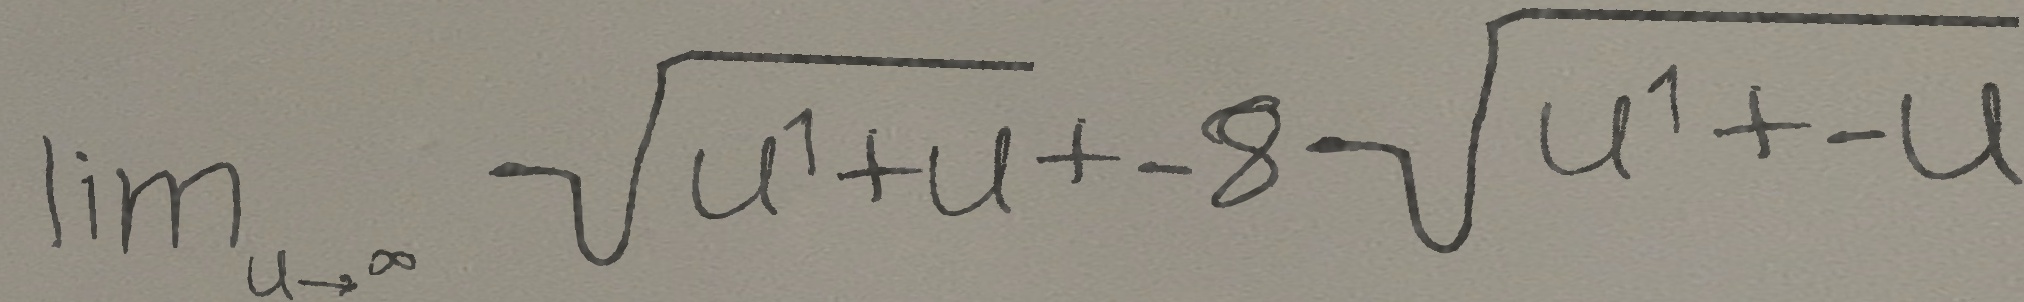 \lim_{u \to \infty} \sqrt{u^1+u}+-8\sqrt{u^1+-u}